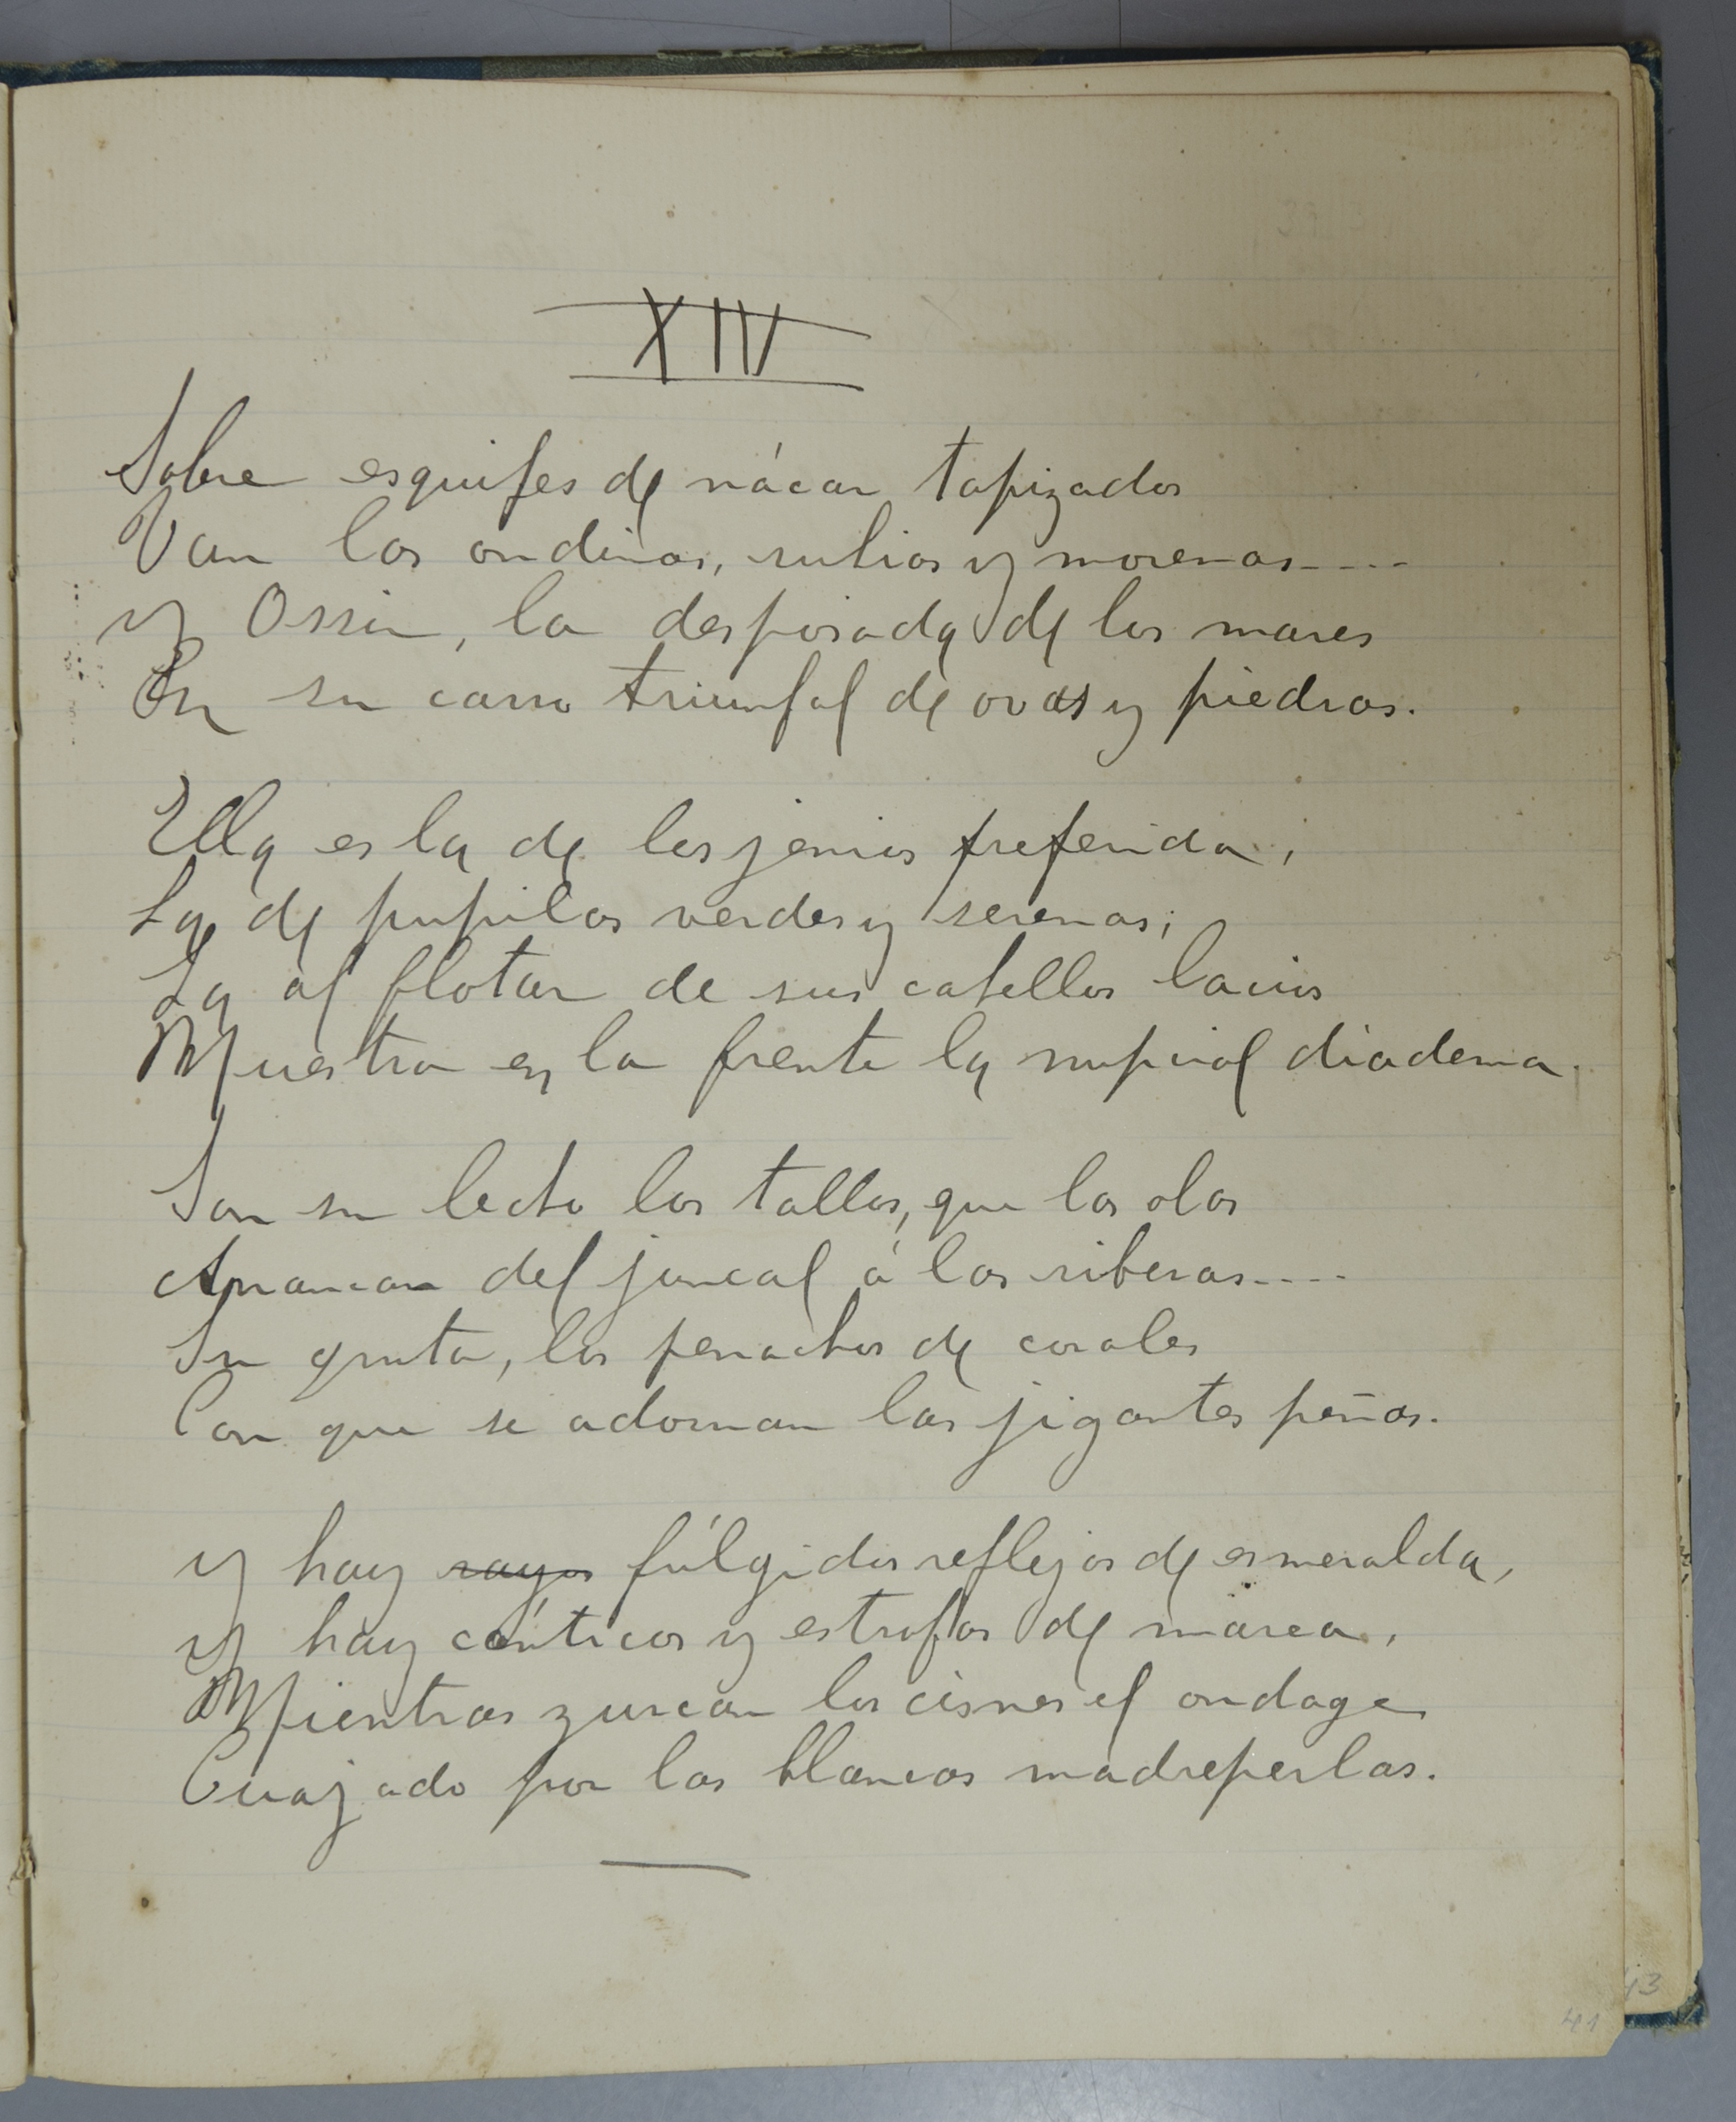 XIV
Sobre esquifes de nácar tapizados
Van las ondinas, rubias y morenas....
y Ossin, la desposada de los mares
En su carro triunfal de ovas y piedras.
Ella es la de los jenios preferida;
La de pupilas verdes y serenas;
La al flotar de sus cabellos lacios
Muestra en la frente la nupcial diadema.
Son su lecho los tallos, que las olas
Arrancan del juncal á las riberas....
Su gruta, los penachos de corales
Con que se adornan las jigantes peñas.
y hay rayos fúlgidos reflejos de esmeralda,
y hay cánticos y estrofas de marea,
Mientras zurcan los cisnes el ondage
Cuajado por las blancas madreperlas.
43
41